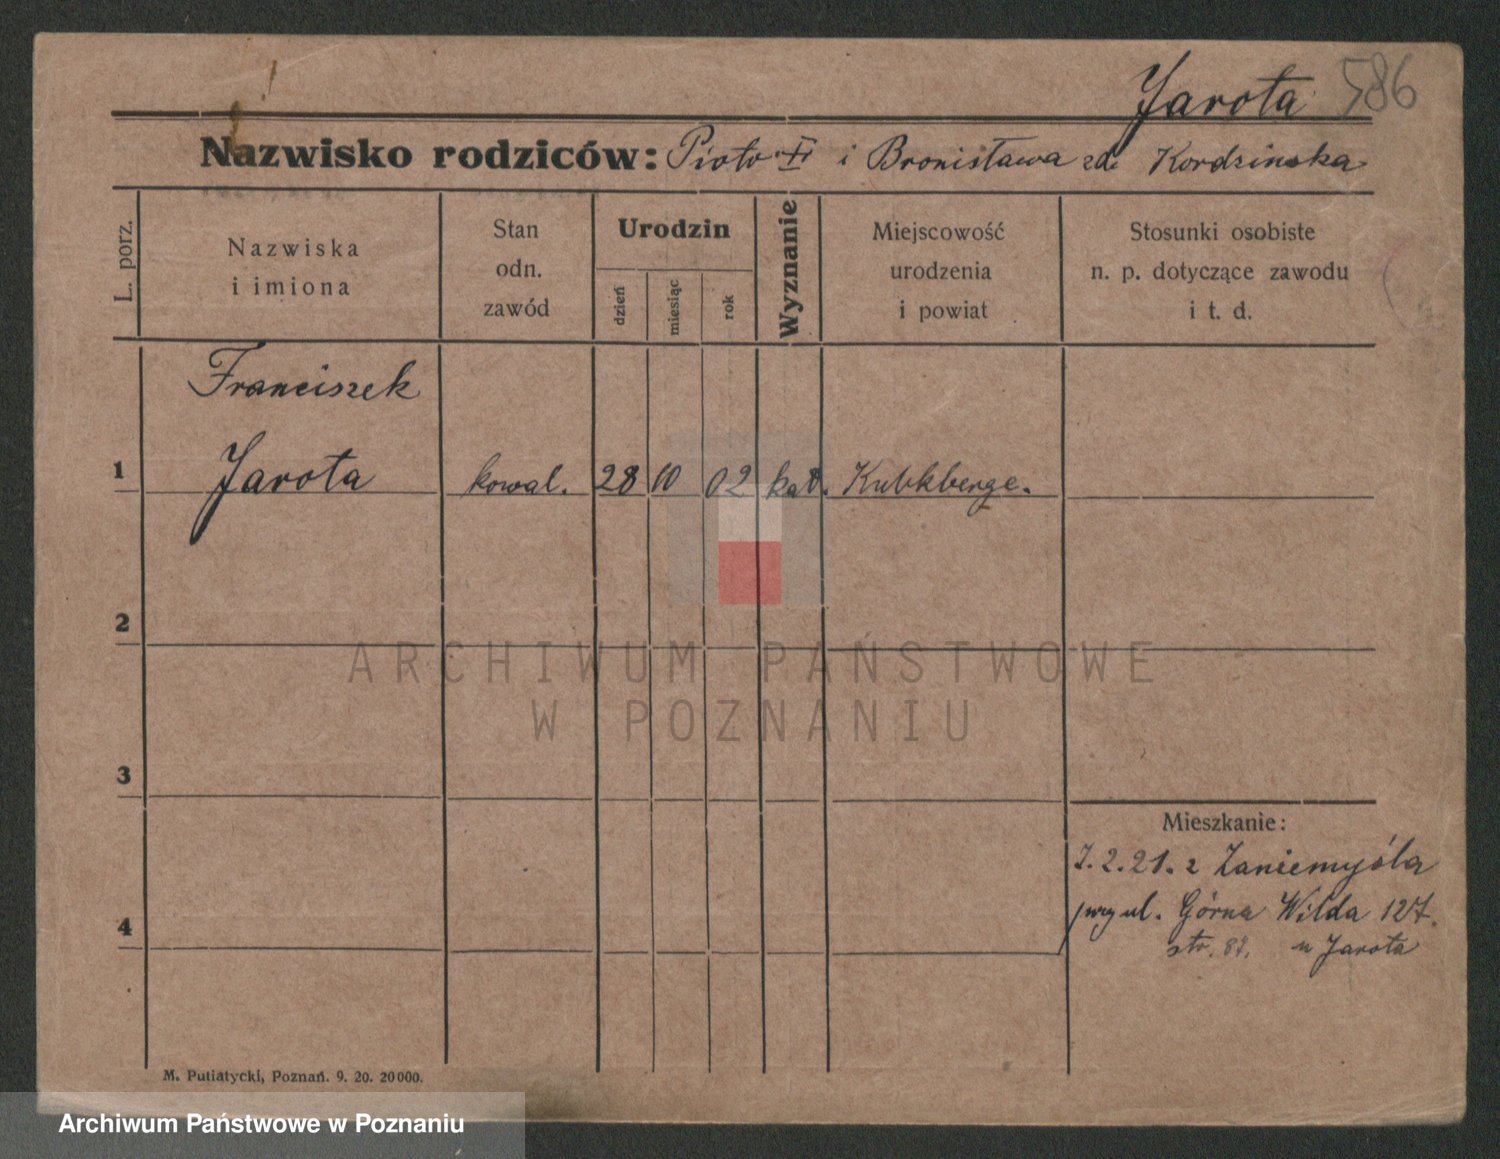 Jarota 586
Nazwisko rodziców: Piotr i Bronisława zd. Kordzinska
L. porz.
Nazwiska
i imiona
Stan
odn.
zawód
Urodzin
dzień
miesiąc
rok
Wyznanie
Miejscowość
urodzenia
i powiat
Stosunki osobiste
n. p. dotyczące zawodu
i t. d.
Franciszek
1 Jarota kowal. 28 10 02 kat.
2
3
4
Mieszkanie:
7.2.21. z Zaniemyśla
przy ul. Górna Wilda 127.
str. 87. u Jarota
M. Putiatycki, Poznań. 9. 20. 20000.
ARCHIWUM PAŃSTWOWE
W POZNANIU
Archiwum Państwowe w Poznaniu